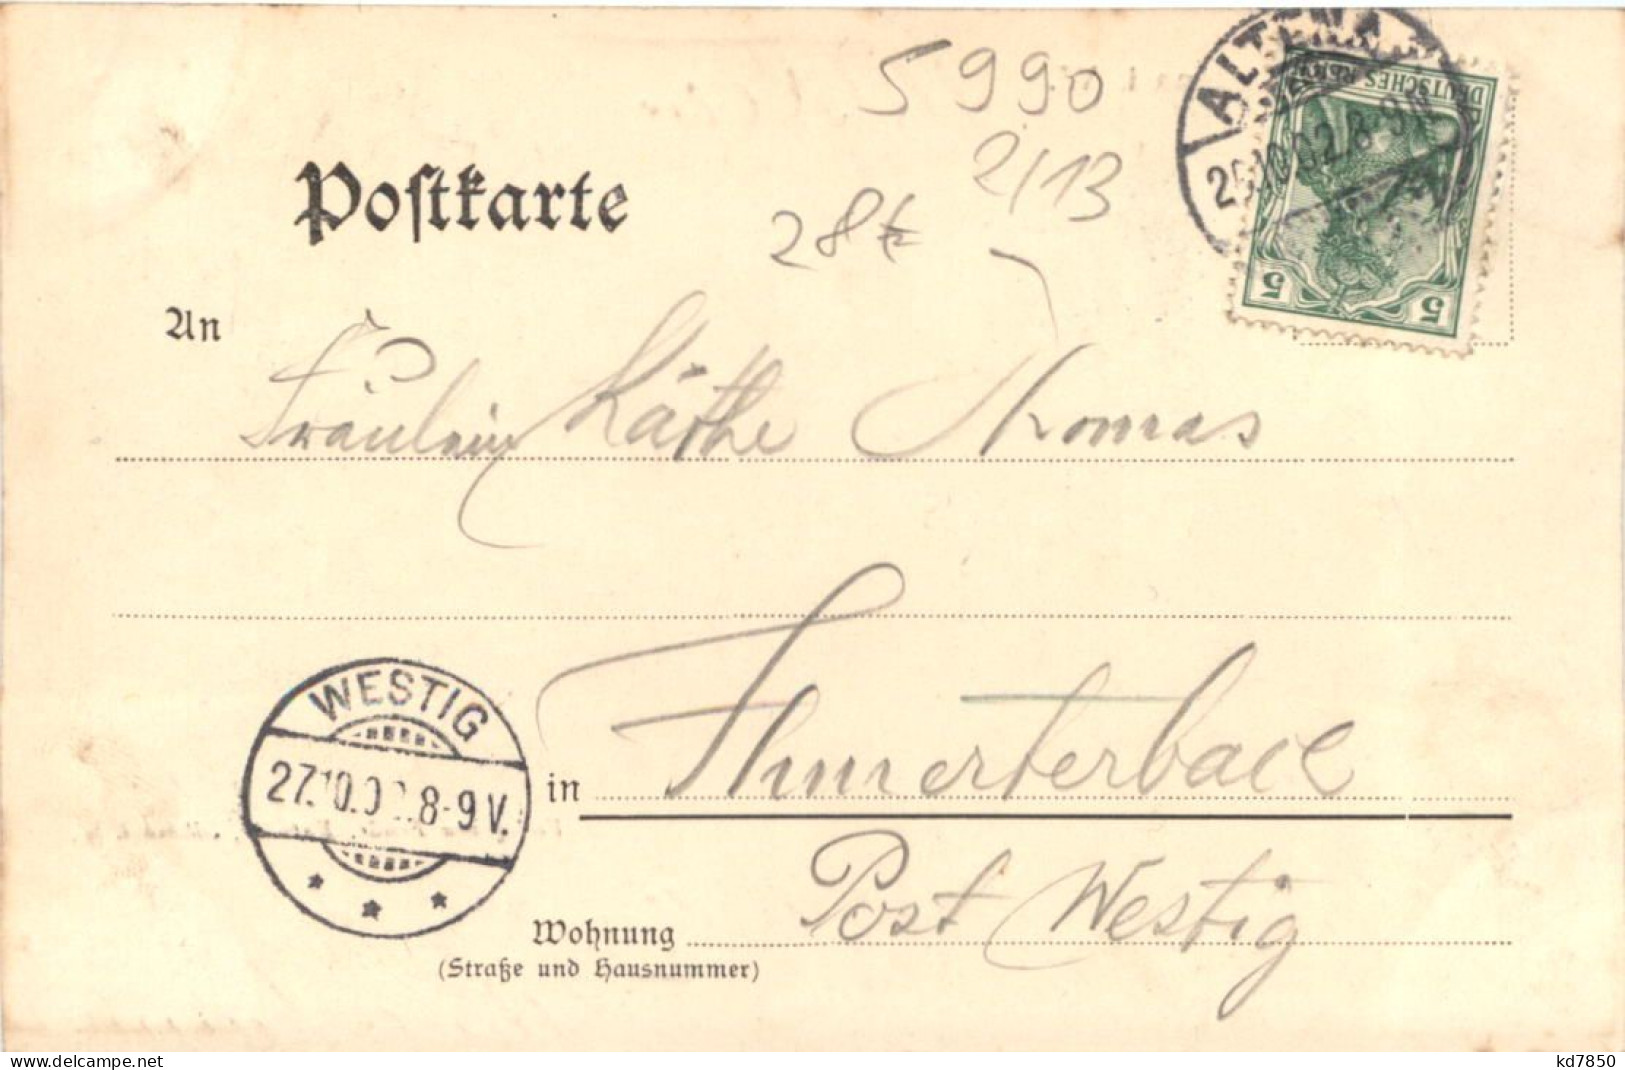 5990
2/13
28 €
ALTENA
26.10.02.8-9N
DEUTSCHES REICH
5 5
Postkarte
An
Fräulein Käthe Thomas
WESTIG
27.10.0 .8-9V.
in
Post Westig
Wohnung
(Straße und Hausnummer)
www.delcampe.net
kd7850